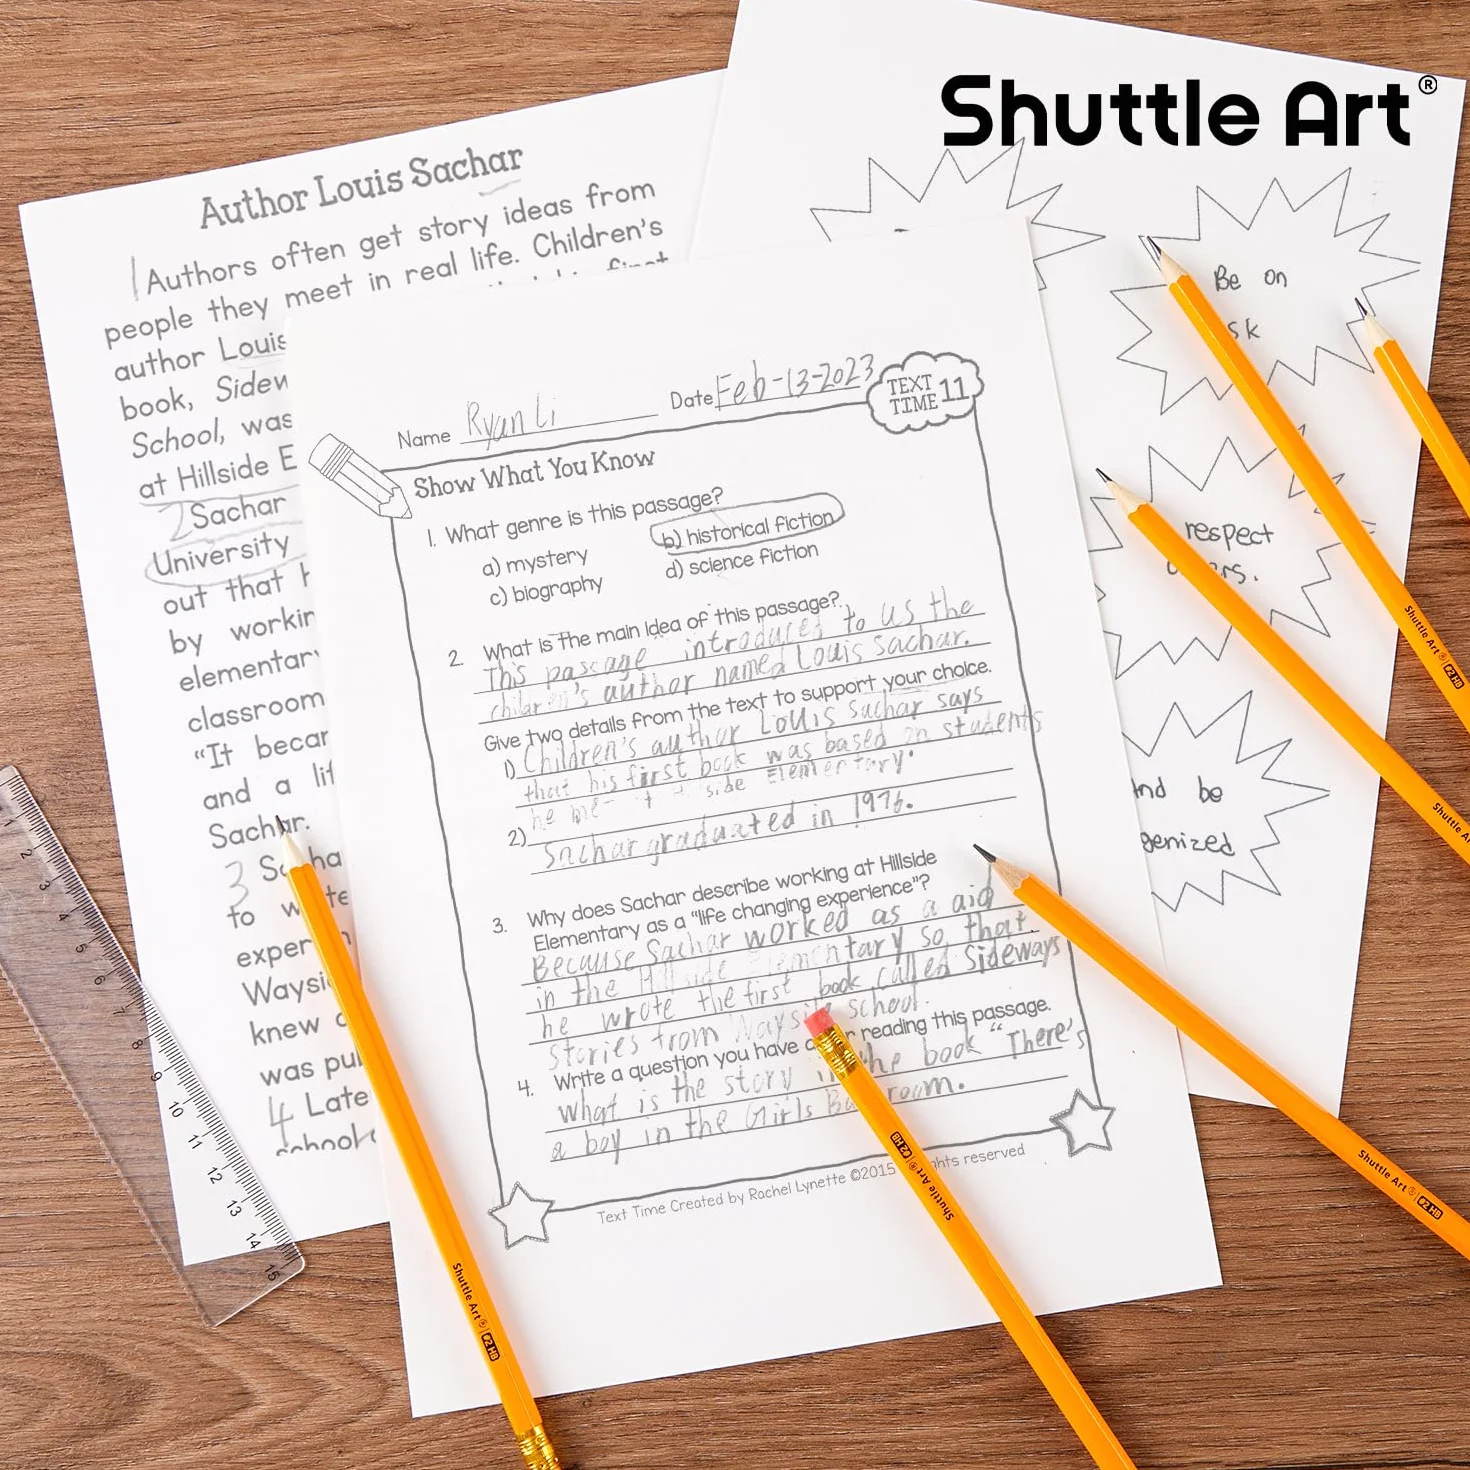 Shuttle Art®
Author Louis Sachar
1 Authors often get story ideas from
people they meet in real life. Children's
author Louis
book,
School, was
at Hillside E
2 Sachar
University
out that
by
elementary
classroom
"It becar
and a lif
Sachar.
3
to
Waysi
knew
was
4 Late
school
Name Ryan Li Date Feb-13-2023
TEXT
TIME 11
Show What You Know
1. What genre is this passage?
a) mystery b) historical fiction
c) biography d) science fiction
2. What is the main idea of this passage?
This pascage introduces to us the
children's author named Louis Sachar.
Give two details from the text to support your choice.
1) Children's author Louis Sachar says
that his first book was based on students
he Elementary.
2) Sachar graduated in 1976.
3. Why does Sachar describe working at Hillside
Elementary as a "life changing experience"?
Because Sachar worked as a aid
in the Hillside Elementary so that
he wrote the first book called Sideways
stories from Wayside school.
4. Write a question you have reading this passage.
What is the story in the book "There's
a boy in the Girls
Text Time Created by Rachel Lynette ©2015 reserved
Be on
sk
respect
others.
nd be
genized
Shuttle Art® #2 HB
Shuttle Art® #2 HB
Shuttle Art® #2 HB
Shuttle Art® #2 HB
Shuttle Art®
1 2 3 4 5 6 7 8 9 10 11 12 13 14 15